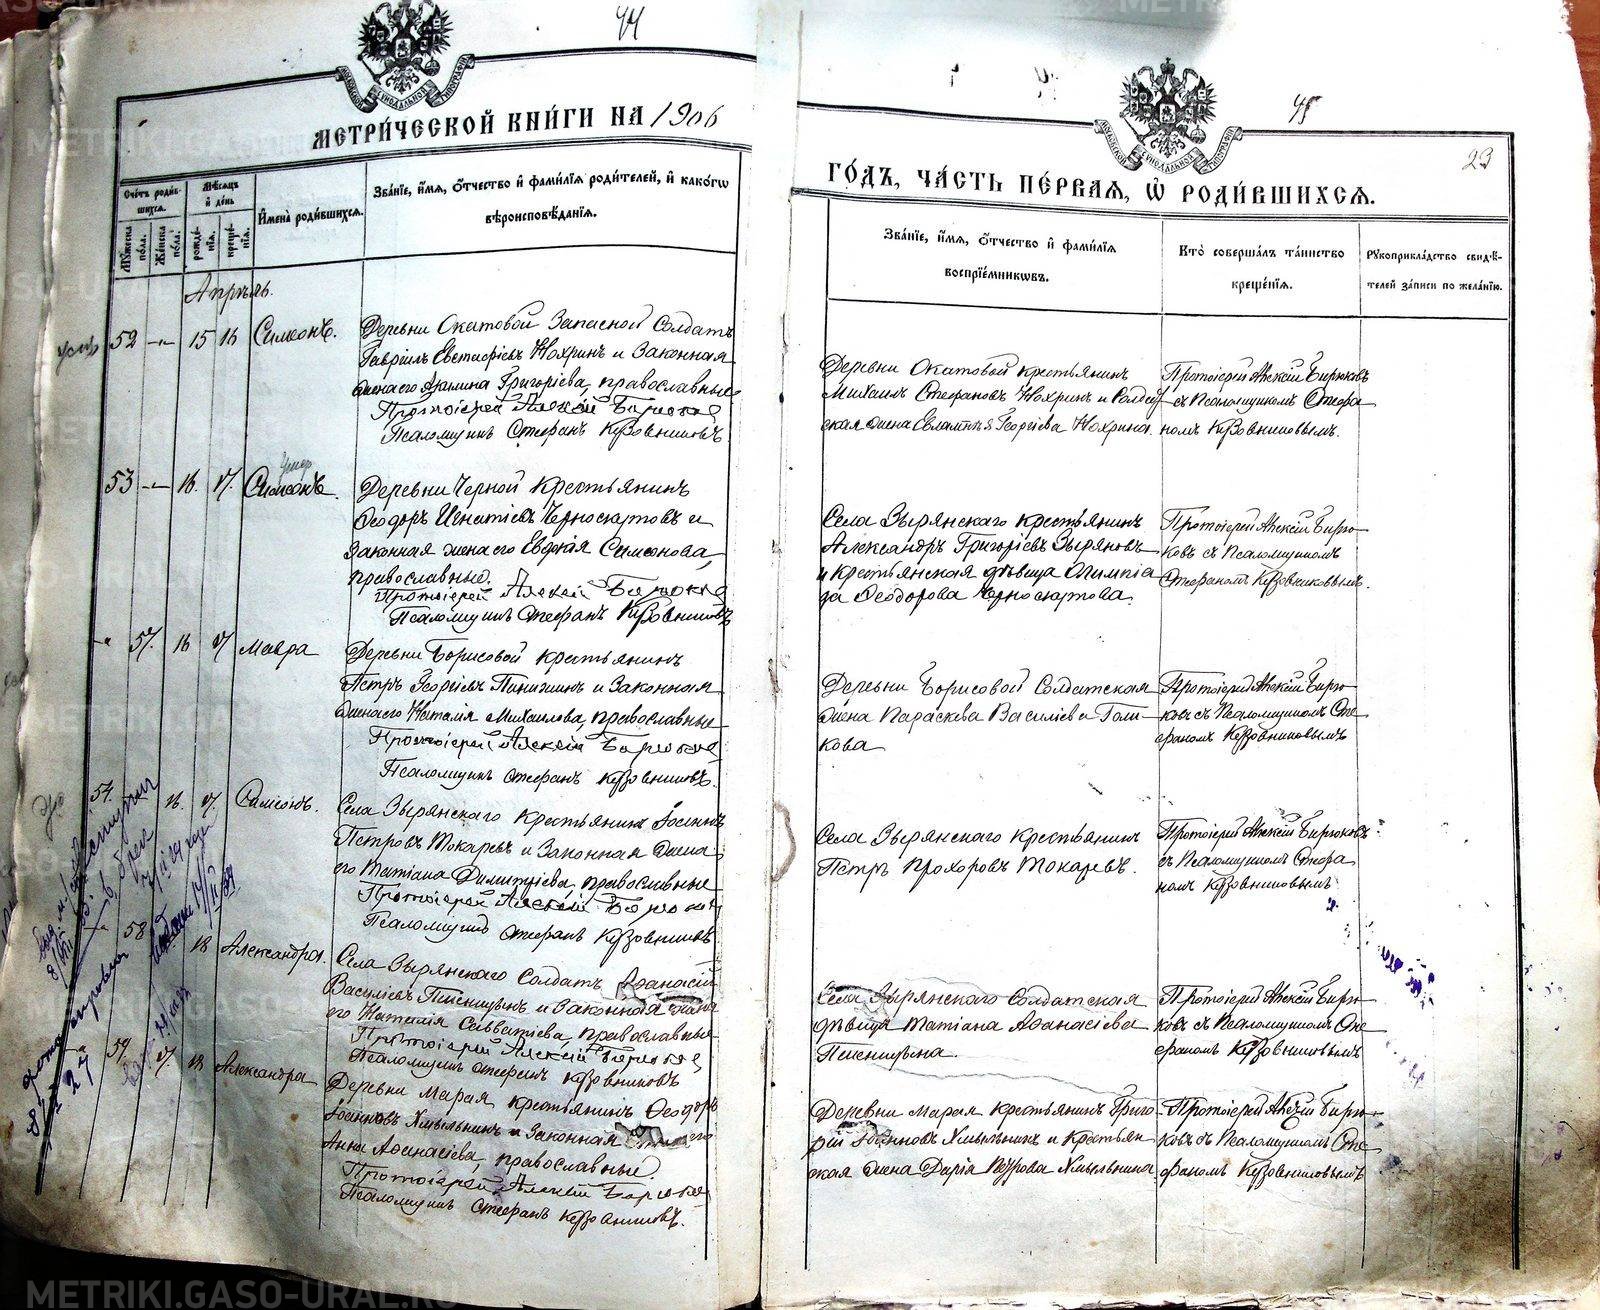 44
МЕТРИ́ЧЕСКОЙ КНИ́ГИ НА 1906
Сче́тъ роди́в-
шихся.
Му́жеска
по́ла.
Же́нска
по́ла.
Мѣ́сяцъ
и҆ де́нь
рожде́-
нїѧ.
креще́-
нїѧ.
И҆мена̀ роди́вшихсѧ.
Зва́нїе, и҆́мѧ, ѻ҆́тчество и҆ фами́лїѧ роди́телей, и҆ како́гѡ
вѣроисповѣ́данїѧ.
Апрѣль.
52 15 16 Симеонъ.
Деревни Окатовой Запасной Солдатъ
Гавріилъ Евстафіевъ Нохринъ и Законная
жена его Григоріева, православные
Протоіерей Алексій Бирюковъ
Псаломщикъ Стефанъ Кузовниковъ
умер
53 16. 17. Симеонъ.
Деревни Черной крестьянинъ
Ѳеодоръ Игнатіевъ Черноскутовъ и
Законная жена его Евдокія Симеонова,
православные.
Протоіерей Алексій Бирюковъ
Псаломщикъ Стефанъ Кузовниковъ
57. 16 17 Мавра
Деревни Борисовой крестьянинъ
Петръ Георгіевъ и Законная
жена его Наталія Михаилова, православные
Протоіерей Алексій Бирюковъ
Псаломщикъ Стефанъ Кузовниковъ.
54. 16. 17. Симеонъ.
Села Зырянскаго Крестьянинъ Іосифъ
Петровъ Токаревъ и Законная жена
его Татіана Димитріева, православные
Протоіерей Алексій Бирюковъ
Псаломщикъ Стефанъ Кузовниковъ
58. 18 Александра.
Села Зырянскаго Солдатъ Аѳанасій
Василіевъ Пшеницынъ и Законная жена
его Наталія Савватіева, православные
Протоіерей Алексій Бирюковъ
Псаломщикъ Стефанъ Кузовниковъ
59. 17. 18 Александра
Деревни Мараи крестьянинъ Ѳеодоръ
Іоанновъ Хмылькинъ и Законная его
Анна Аѳанасіева, православные.
Протоіерей Алексій Бирюковъ
Псаломщикъ Стефанъ Кузовниковъ.
45
23
ГО́ДЪ, ЧА́СТЬ ПЕ́РВАѦ, Ѡ҆ РОДИ́ВШИХСѦ.
Зва́нїе, и҆́мѧ, ѻ҆́тчество и҆ фами́лїѧ
воспрїе́мникѡвъ.
Кто̀ соверша́лъ та́инство
креще́нїѧ.
Рꙋкоприкла́дство свидѣ́-
телей за́писи по жела́нїю.
Деревни Окатовой крестьянинъ
Михаилъ Стефановъ Нохринъ и Солдат-
ская жена Евлампія Георгіева Нохрина.
Протоіерей Алексій Бирюковъ
съ Псаломщикомъ Стефа-
номъ Кузовниковымъ.
Села Зырянскаго крестьянинъ
Александръ Григоріевъ Зыряновъ
и Крестьянская дѣвица Олимпіа-
да Ѳеодорова Черноскутова.
Протоіерей Алексій Бирю-
ковъ съ Псаломщикомъ
Стефаномъ Кузовниковымъ.
Деревни Борисовой Солдатская
жена Параскева Василіева Голи-
кова
Протоіерей Алексій Бирю-
ковъ съ Псаломщикомъ Сте-
фаномъ Кузовниковымъ
Села Зырянскаго Крестьянинъ
Петръ Прохоровъ Токаревъ.
Протоіерей Алексій Бирюковъ
съ Псаломщикомъ Стефа-
номъ Кузовниковымъ
Села Зырянскаго Солдатская
дѣвица Татіана Аѳанасіева
Пшеницына.
Протоіерей Алексій Бирю-
ковъ съ Псаломщикомъ Сте-
фаномъ Кузовниковымъ
Деревни Мараи крестьянинъ Григо-
рій Іоанновъ Хмылькинъ и Крестьян-
ская жена Дарія Петрова Хмылькина.
Протоіерей Алексій Бирю-
ковъ съ Псаломщикомъ Сте-
фаномъ Кузовниковымъ
METRIKI.GASO-URAL.RU